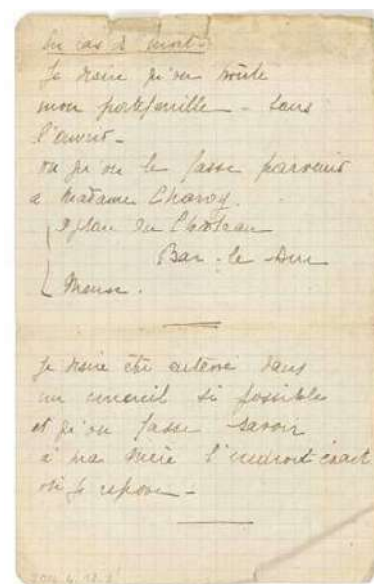 En cas de mort –
Je désire qu'on brûle
mon portefeuille – sans
l'ouvrir –
ou qu'on le fasse parvenir
à Madame Charoy
place du Château
Bar-le-Duc
Meuse.
Je désire être enterré dans
un cercueil si possible
et qu'on fasse savoir
à ma mère l'endroit exact
où je repose –